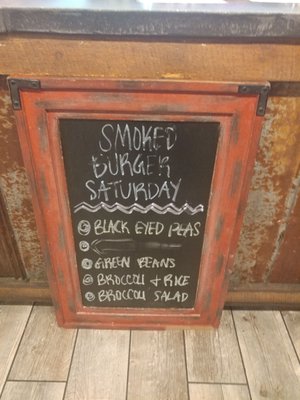 SMOKED
BURGER
SATURDAY
BLACK EYED PEAS
GREEN BEANS
BROCCOLI & RICE
BROCCOLI SALAD